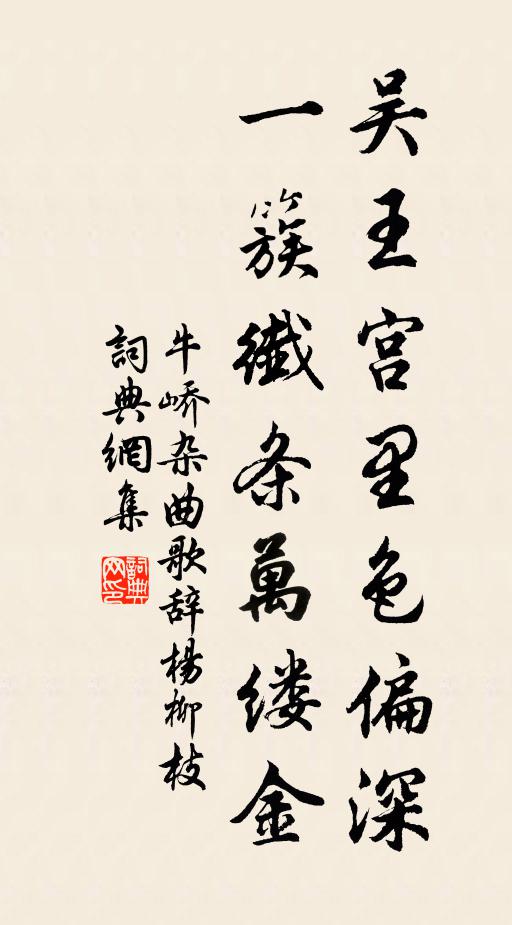 吴王宫里色偏深
一簇纖条萬缕金
牛峤杂曲歌辞楊柳枝
詞典網集
詞典网印